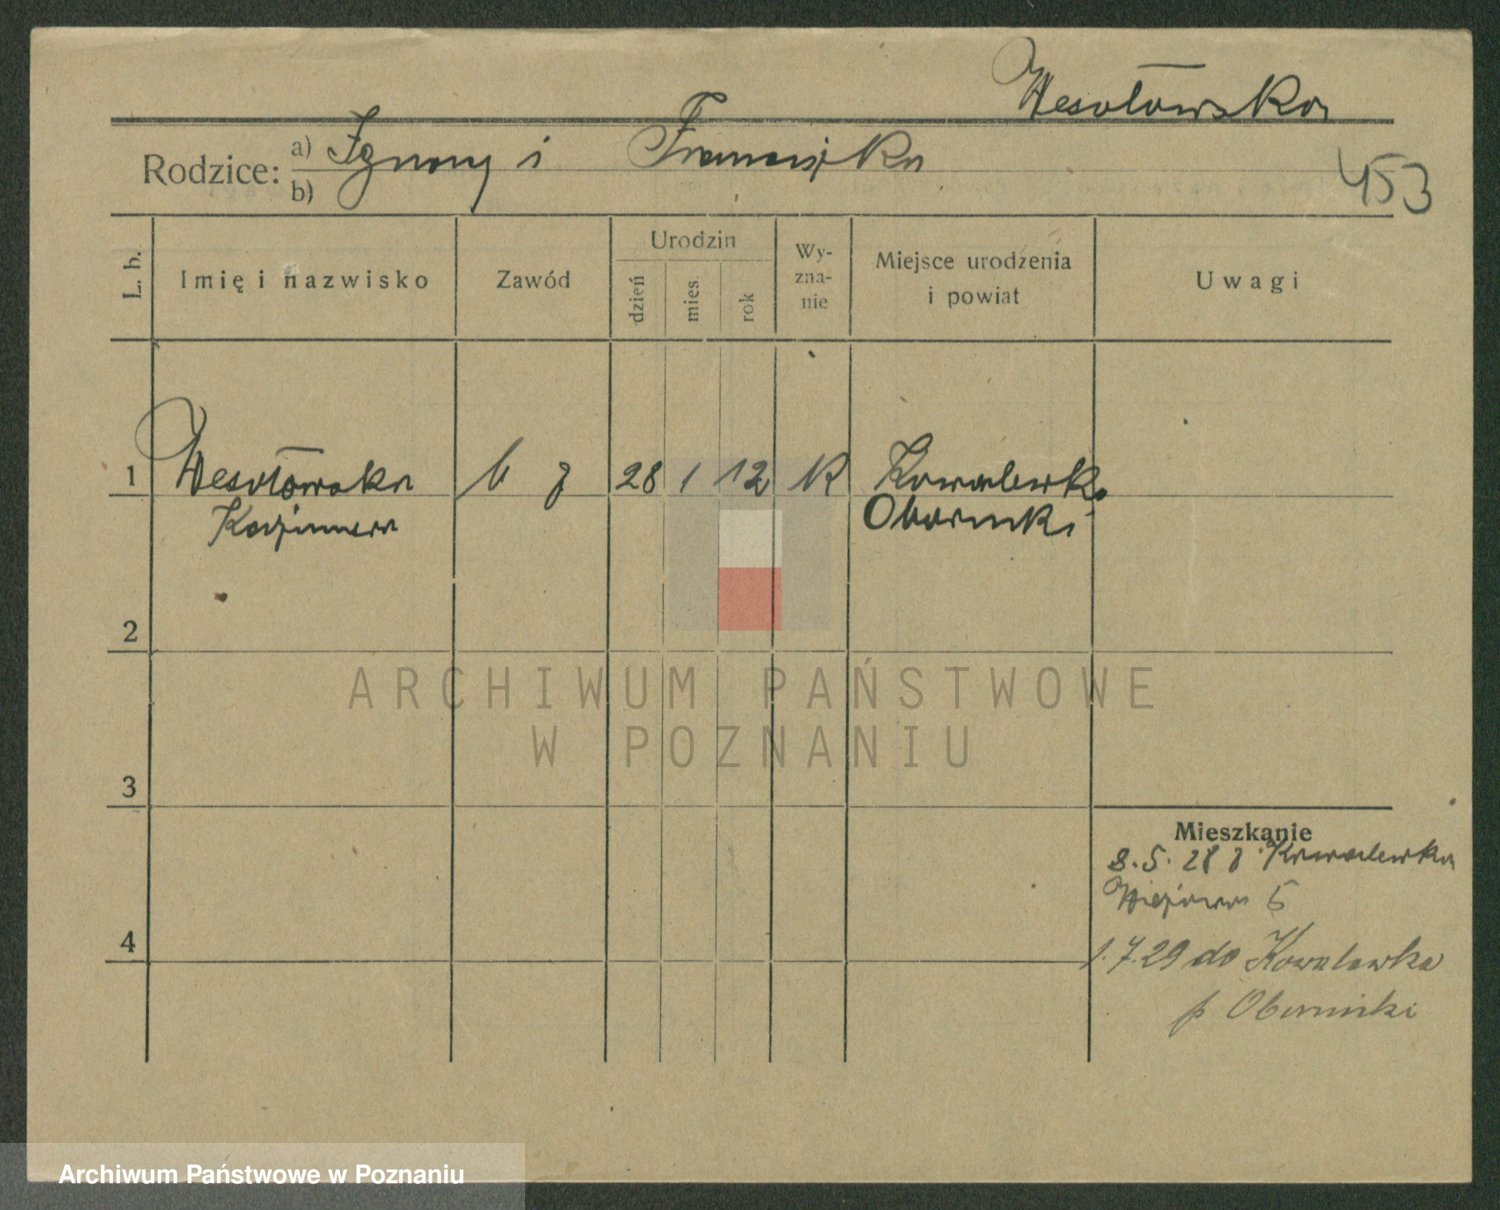 Wesołowska
Rodzice: a) Ignacy i Franciszka
b)
453
L. b.
Imię i nazwisko
Zawód
Urodzin
dzień
mies.
rok
Wy-
zna-
nie
Miejsce urodzenia
i powiat
Uwagi
1 Wesołowska b z 28 1 12 K Kowalewko
Kazimiera Obornicki
2
ARCHIWUM PAŃSTWOWE
W POZNANIU
3
Mieszkanie
8.5.28 z Kowalewka
5
4
1.7.29 do Kowalewka
p. Obornicki
Archiwum Państwowe w Poznaniu